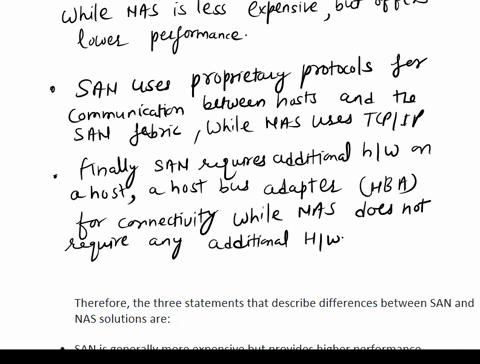 while NAS is less expensive, but offers
lower performance.
• SAN uses proprietary protocols for
communication between hosts and the
SAN fabric, while NAS uses TCP/IP
• Finally SAN requires additional h/w on
a host, a host bus adapter (HBA)
for connectivity while NAS does not
require any additional H/w.
Therefore, the three statements that describe differences between SAN and
NAS solutions are:
• SAN is generally more expensive but provides higher performance